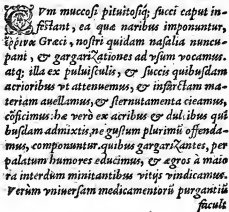 CVm muccosi pituitosiq; succi caput in-
festant, ea quæ naribus imponuntur,
ἔῤῥινα Græci, nostri quidam nasalia nuncu-
pant, & gargarizationes ad vsum vocamus.
atq; illa ex puluisculis, & succis quibusdam
acrioribus vt attenuemus, & infarctam ma-
teriam auellamus, & sternutamenta cieamus,
cōficimus: hæ verò ex acribus & dulcibus qui
busdam admixtis, ne gustum plurimū offenda-
mus, componuntur. quibus gargarizantes, per
palatum humores educimus, & ægros à maio
ra interdum minitantibus vitijs vindicamus.
Verùm vniuersam medicamentorū purgantiū
facult